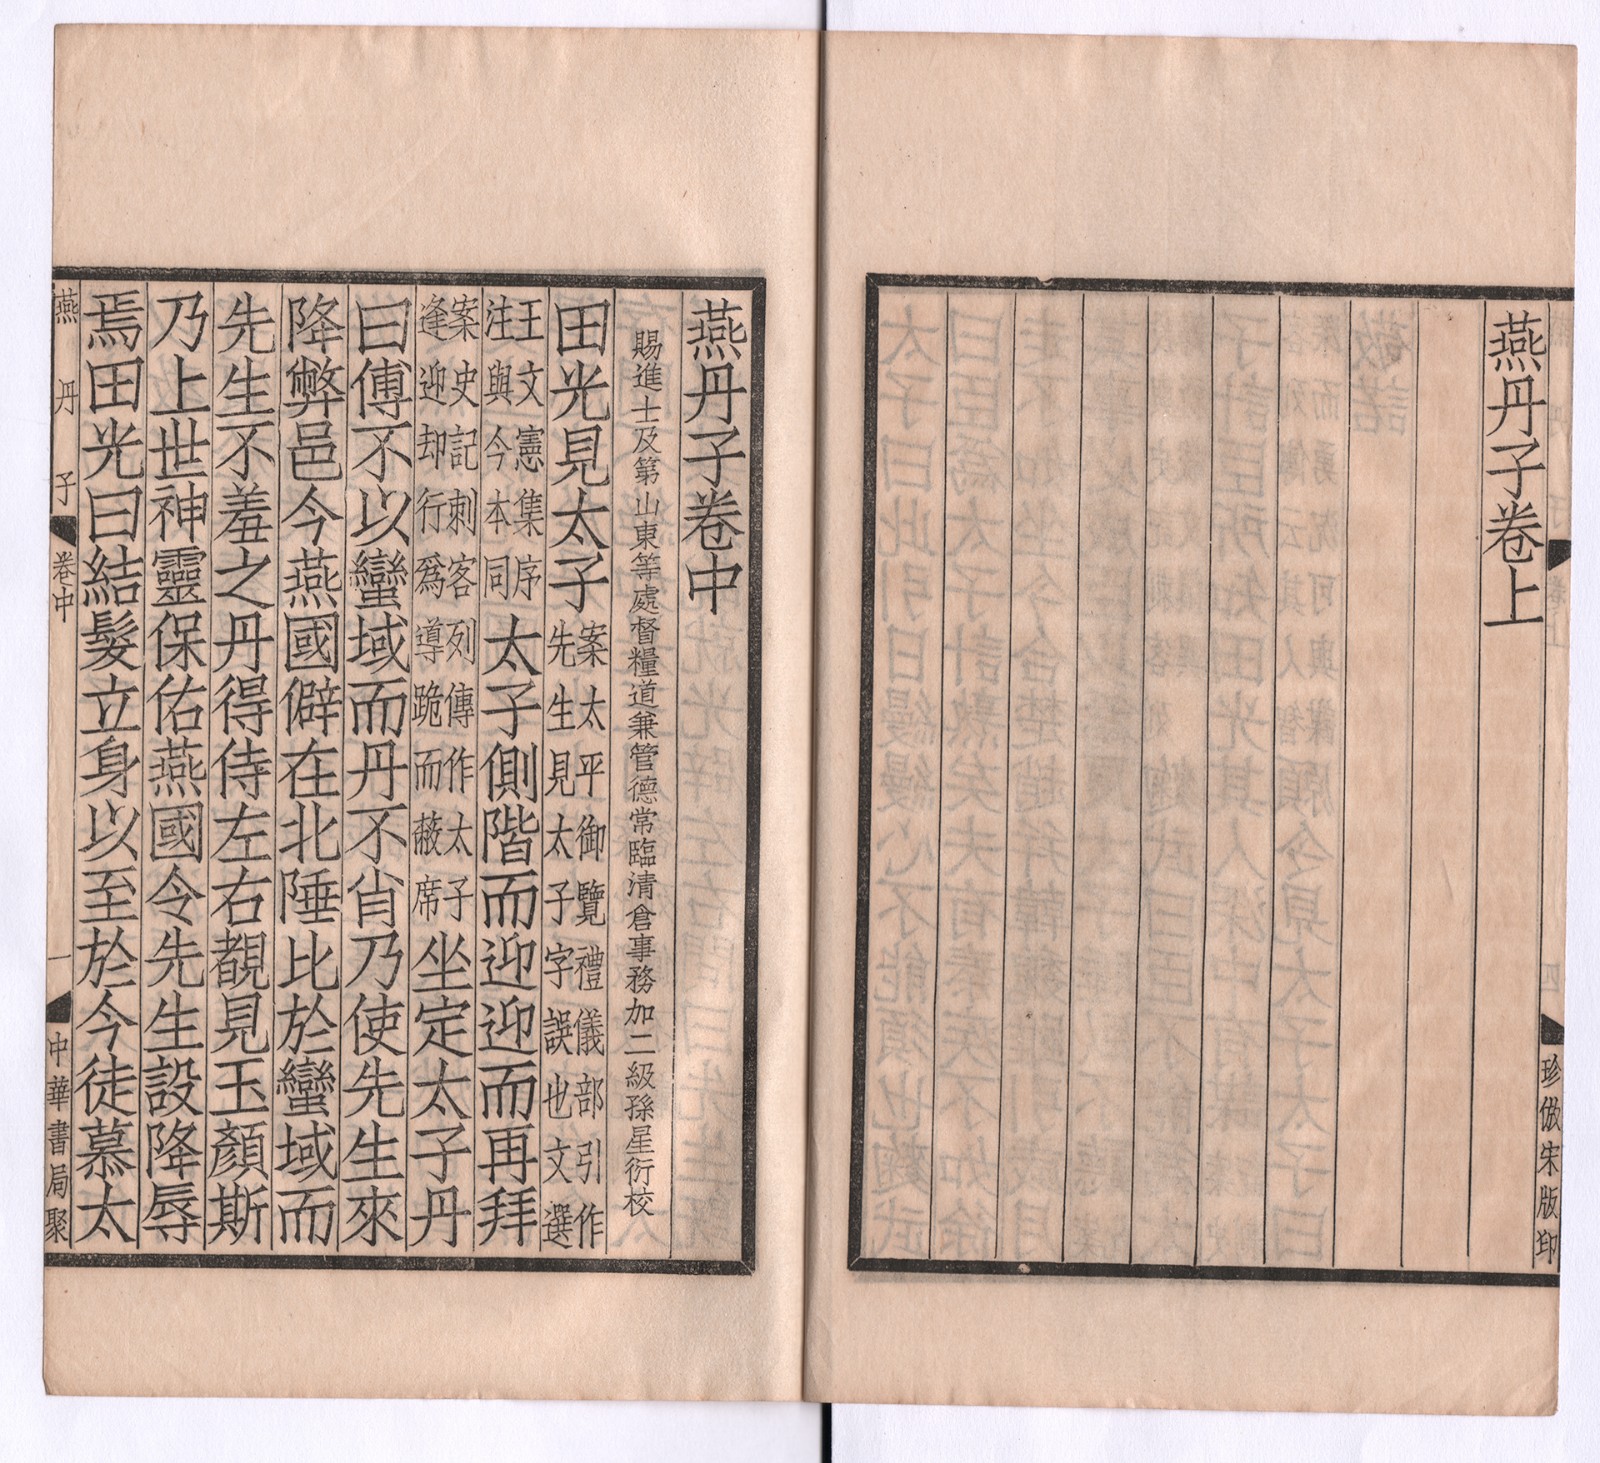 珍倣宋版印
燕丹子卷上
燕丹子卷中
賜進士及第山東等處督糧道兼管德常臨清倉事務加二級孫星衍校
田光見太子案太平御覽禮儀部引作先生見太子字誤也文選
王文憲集序注與今本同太子側階而迎迎而再拜
案史記刺客列傳作太子逢迎却行爲導跪而蔽席坐定太子丹
曰傅不以蠻域而丹不肖乃使先生來
降弊邑今燕國僻在北陲比於蠻域而
先生不羞之丹得侍左右覩見玉顏斯
乃上世神靈保佑燕國令先生設降辱
焉田光曰結髮立身以至於今徒慕太
燕丹子 卷中 一 中華書局聚